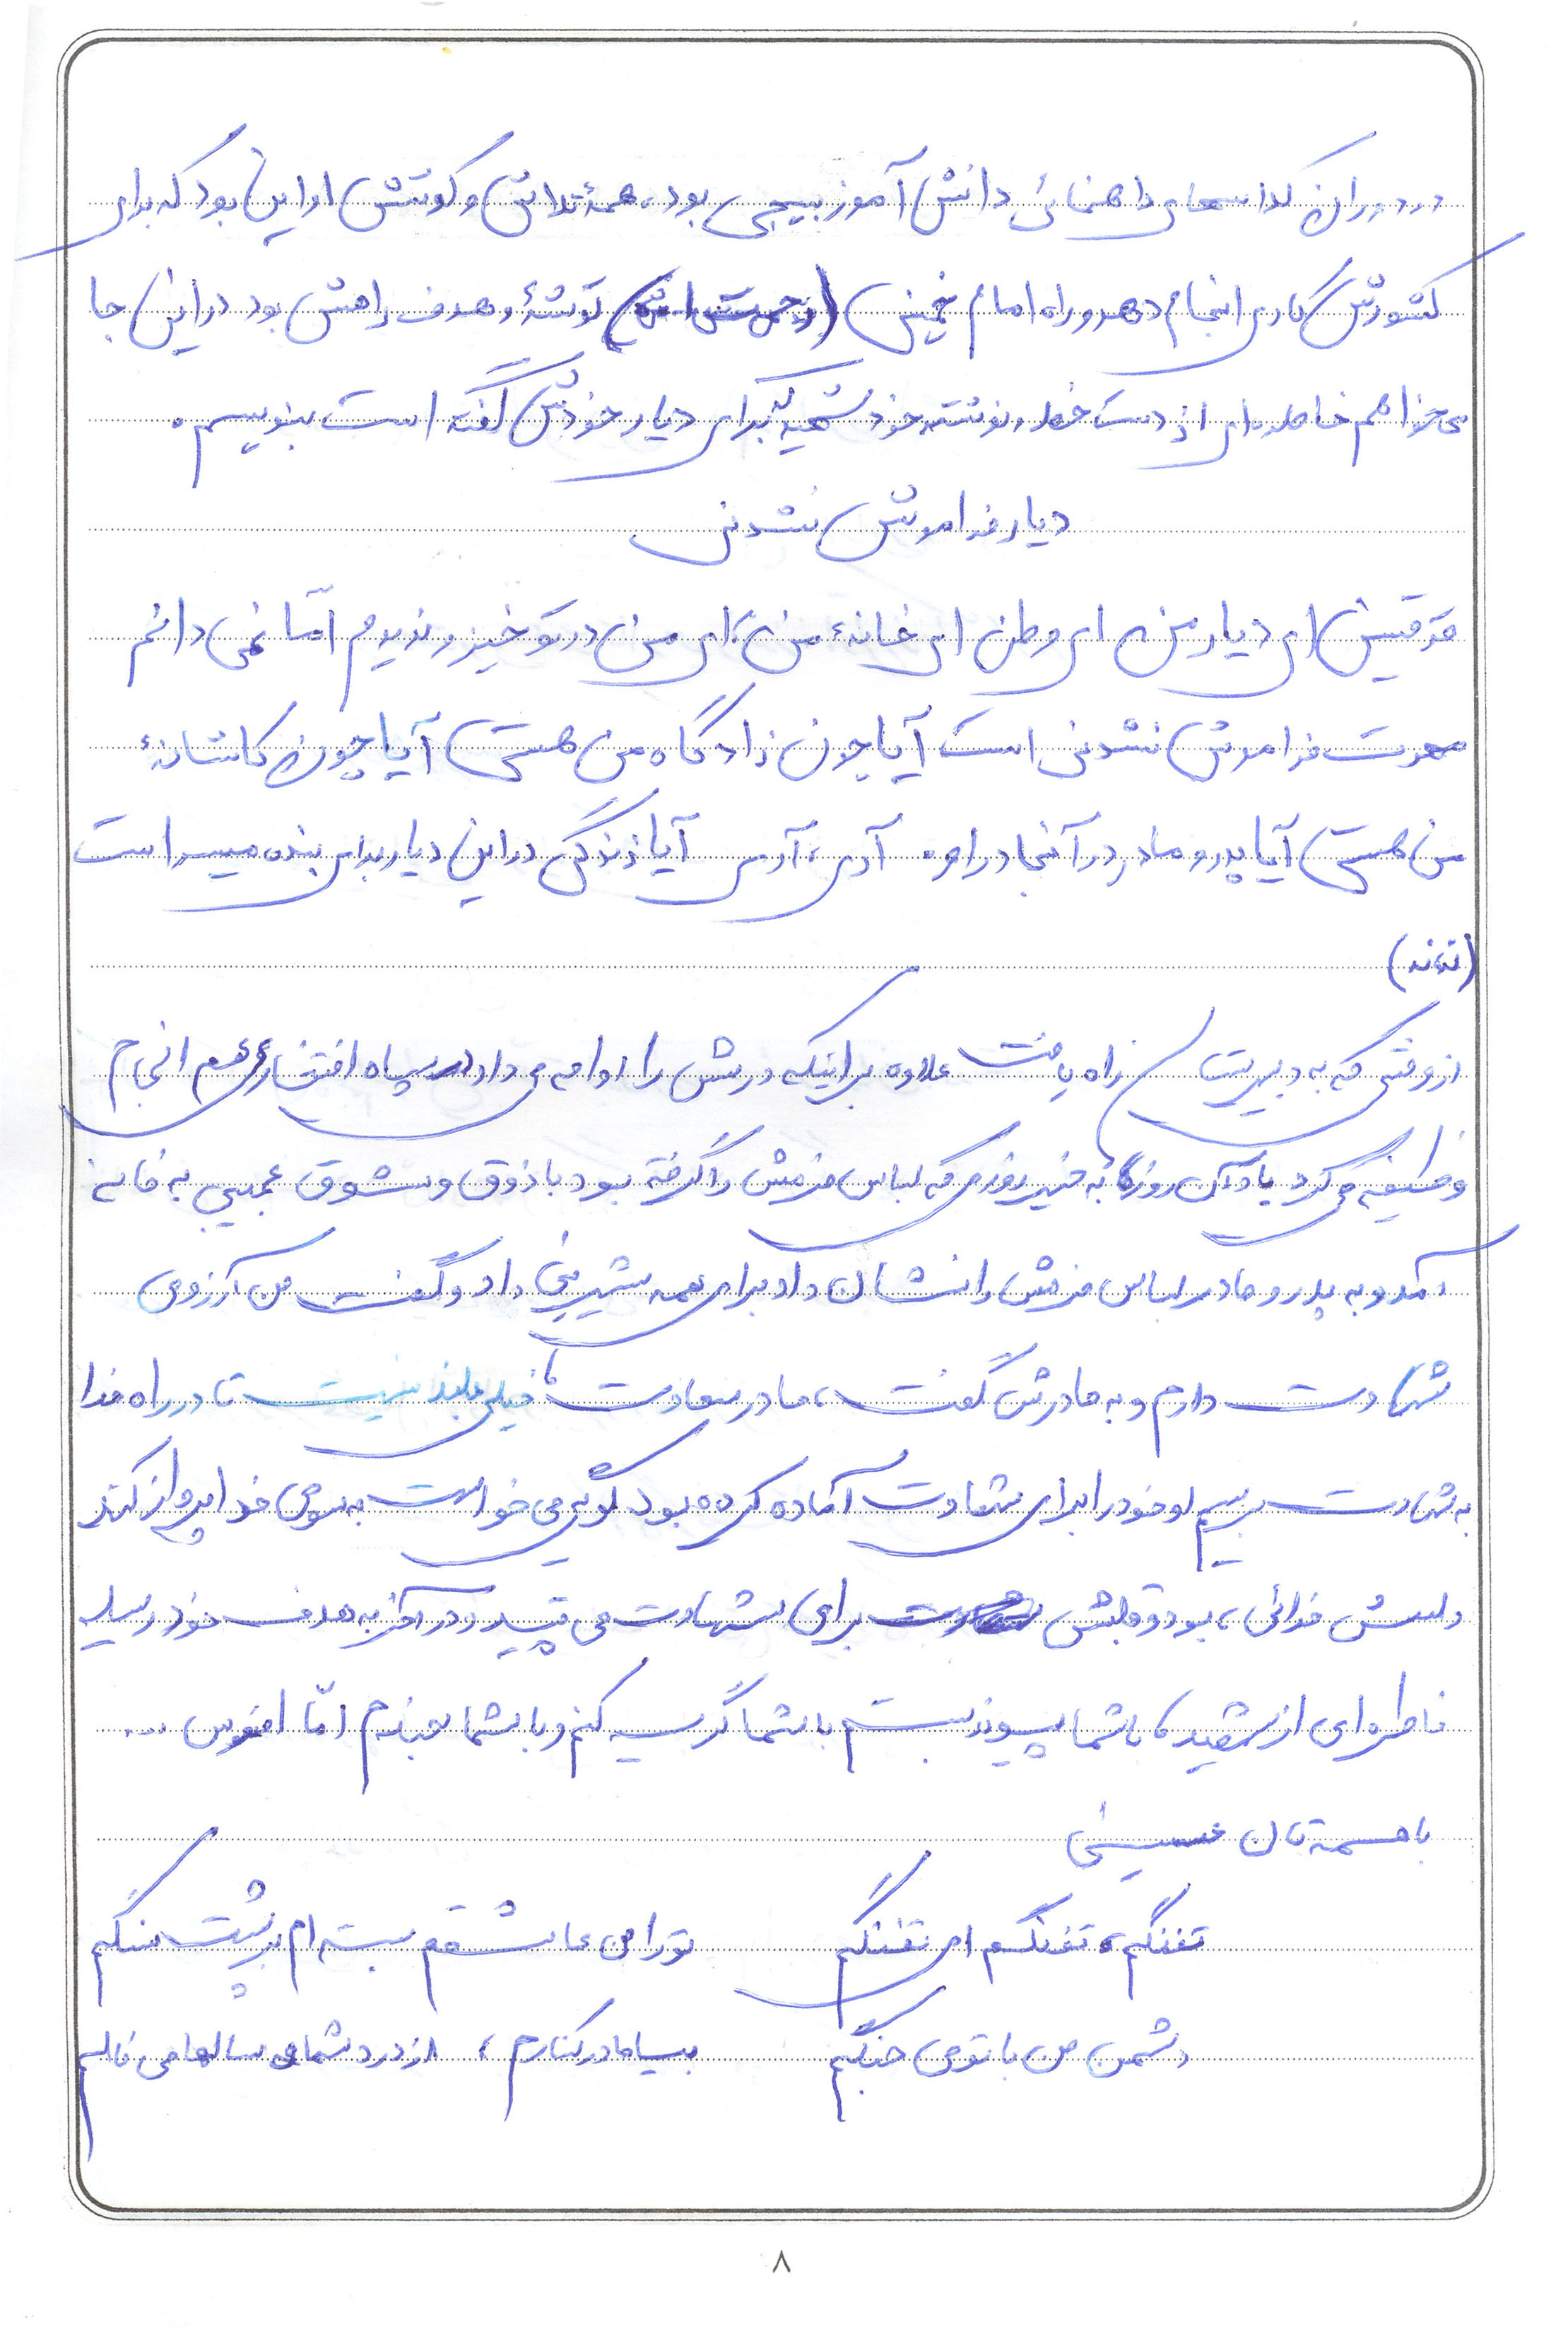 در دوران کلاسهای راهنمائی دانش آموز بسیجی بود، همهٔ تلاش و کوشش او این بود که برای
کشورش کاری انجام دهد و راه امام خمینی ( ) توشهٔ و هدف راهش بود در این جا
می خواهم خاطره ای از دست خط و نوشته خود شهید که برای دیار خودش گفته است بنویسم.
دیار فراموش نشدنی
ای دیار من ای وطن ای خانهٔ من ای من در تو خیز و ندیدم امّا نمی دانم
مهرت فراموش نشدنی است آیا چون زادگاه من هستی آیا چون کاشانهٔ
من هستی آیا پدر و مادر در آنجا دارم. آری، آری آیا زندگی در این دیار برای بنده میسر است
از وقتی که به دبیرستان راه یافت علاوه بر اینکه درسش را ادامه می داد در سپاه افتخاری هم انجام
وظیفه می کرد یاد آن روزها به خیر روزی که لباس فرمش را گرفته بود با ذوق و شوق عجیبی به خانه
آمد و به پدر و مادر لباس فرمش را نشان داد برای همه شیرینی داد و گفت من آرزوی
شهادت دارم و به مادرش گفت، مادر سعادت خیلی بلند نیست تا در راه خدا
به شهادت برسیم او خود را برای شهادت آماده کرده بود گویی می خواست به سوی خدا پرواز کند
دلش خدائی، بود و قلبش برای شهادت می تپید و در آخر به هدف خود رسید
خاطره ای از شهید، با شما پیوند بستم با شما گریه کنم و با شما بخندم امّا افسوس ...
باسمه تعالی حسینی
تفنگم، تفنگم ای تفنگم تو را من عاشقم بسته ام بر پشت سنگم
دشمن من با تو می جنگم بیا مادر کنارم، از درد شما سالها می نالم
۸